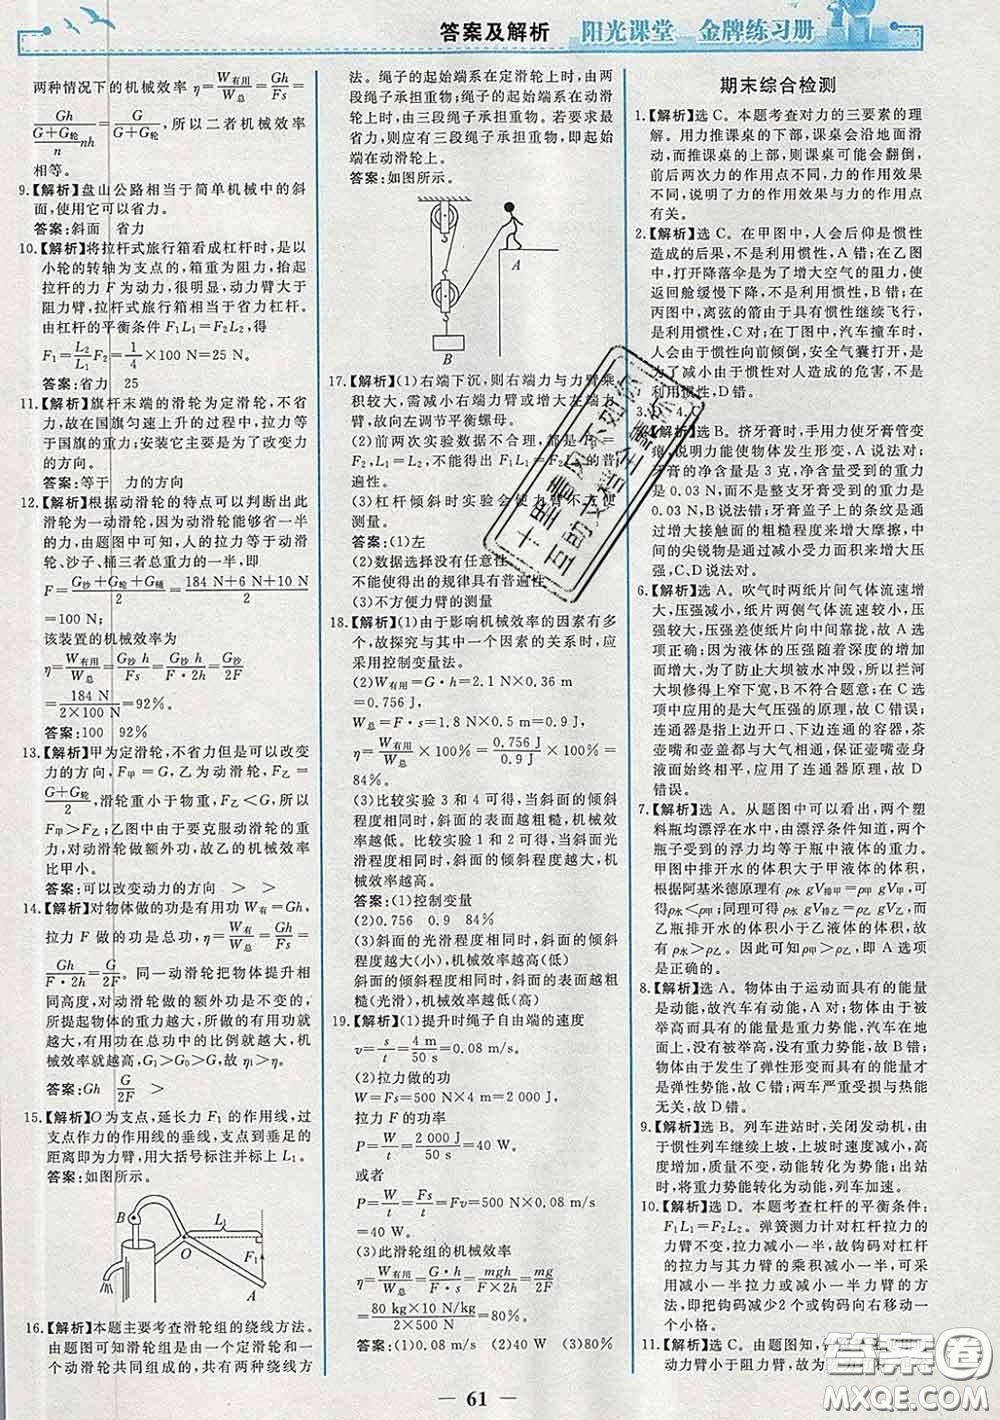 答案及解析 阳光课堂 金牌练习册
两种情况下的机械效率η=W有用/W总=Gh/Fs=
Gh/((G+G轮)/n·nh)=G/(G+G轮),所以二者机械效率
相等。
9.【解析】盘山公路相当于简单机械中的斜
面,使用它可以省力。
答案:斜面 省力
10.【解析】将拉杆式旅行箱看成杠杆时,是以
小轮的转轴为支点的,箱重为阻力,抬起
拉杆的力F为动力,很明显,动力臂大于
阻力臂,拉杆式旅行箱相当于省力杠杆。
由杠杆的平衡条件F1L1=F2L2,得
F1=L2/L1 F2=1/4×100 N=25 N。
答案:省力 25
11.【解析】旗杆末端的滑轮为定滑轮,不省
力,故在国旗匀速上升的过程中,拉力等
于国旗的重力;安装它主要是为了改变力
的方向。
答案:等于 力的方向
12.【解析】根据动滑轮的特点可以判断出此
滑轮为一动滑轮,因为动滑轮能够省一半
的力,由题图可知,人的拉力等于动滑
轮、沙子、桶三者总重力的一半,即
F=(G沙+G轮+G桶)/2=(184 N+6 N+10 N)/2
=100 N;
该装置的机械效率为
η=W有用/W总=G沙h/Fs=G沙h/F·2h=G沙/2F
=184 N/(2×100 N)=92%。
答案:100 92%
13.【解析】甲为定滑轮,不省力但是可以改变
力的方向,F甲=G,乙为动滑轮,F乙=
(G+G轮)/2,滑轮重小于物重,F乙<G,所以
F甲>F乙;乙图中由于要克服动滑轮的重
力做额外功,故乙的机械效率
比甲小。
答案:可以改变动力的方向 > >
14.【解析】对物体做的功是有用功W有=Gh,
拉力F做的功是总功,η=W有/W总=Gh/Fs=
Gh/F·2h=G/2F。同一动滑轮把物体提升相
同高度,对动滑轮做的额外功是相同的,
所提起物体的重力越大,所做的有用功就
越大,有用功在总功中的比例就越大,机
械效率就越高,G1>G2>G,故η1>η。
答案:Gh G/2F >
15.【解析】O为支点,延长力F1的作用线,过
支点作力的作用线的垂线,支点到垂足的
距离即为力臂,用大括号标注并标上L1。
答案:如图所示。
B L1 O F1 A
16.【解析】本题主要考查滑轮组的绕线方法。
由题图可知滑轮组是由一个定滑轮和一
个动滑轮共同组成的,共有两种绕线方
法。绳子的起始端系在定滑轮上时,由两
段绳子承担重物;绳子的起始端系在动滑
轮上时,由三段绳子承担重物。若要求最
省力,则应有三段绳子承担重物,即起始
端在动滑轮上。
答案:如图所示。
A
B
17.【解析】(1)右端下沉,则右端力与力臂乘
积较大,需减小右端力臂或增大左端力
臂,故向左调节平衡螺母。
(2)前两次实验数据不合理,都是F1=
F2,L1=L2,不能得出F1L1=F2L2的普
遍性。
(3)杠杆倾斜时实验会使力臂不方便
测量。
答案:(1)左
(2)数据选择没有任意性
不能使得出的规律具有普遍性
(3)不方便力臂的测量
18.【解析】(1)由于影响机械效率的因素有多
个,故探究与其中一个因素的关系时,应
采用控制变量法。
(2)W有用=G·h=2.1 N×0.36 m
=0.756 J,
W总=F·s=1.8 N×0.5 m=0.9 J,
η=W有用/W总×100%=0.756 J/0.9 J×100%=
84%。
(3)比较实验3和4可得,当斜面的倾斜
程度相同时,斜面的表面越粗糙,机械效
率越低。比较实验1和2可得,当斜面光
滑程度相同时,斜面的倾斜程度越大,机
械效率越高。
答案:(1)控制变量
(2)0.756 0.9 84%
(3)斜面的光滑程度相同时,斜面的倾斜
程度越大(小),机械效率越高(低)
斜面的倾斜程度相同时,斜面的表面越
粗糙(光滑),机械效率越低(高)
19.【解析】(1)提升时绳子自由端的速度
v=s/t=4 m/50 s=0.08 m/s。
(2)拉力做的功
W=Fs=500 N×4 m=2 000 J,
拉力F的功率
P=W/t=2 000 J/50 s=40 W。
或者
P=W/t=Fs/t=Fv=500 N×0.08 m/s
=40 W。
(3)此滑轮组的机械效率
η=W有用/W总=G·h/F·s=mgh/F×2h=mg/2F
=80 kg×10 N/kg/2×500 N=80%。
答案:(1)0.08 m/s (2)40 W (3)80%
期末综合检测
1.【解析】选C。本题考查对力的三要素的理
解。用力推课桌的下部,课桌会沿地面滑
动,而推课桌的上部,则课桌可能会翻倒,
前后两次力的作用点不同,力的作用效果
不同,说明了力的作用效果与力的作用点
有关。
2.【解析】选C。在甲图中,人会后仰是惯性
造成的,不是利用惯性,A错;在乙图
中,打开降落伞增大空气的阻力,使
返回舱缓慢下降,不是利用惯性,B错;在
丙图中,离弦的箭由于具有惯性继续飞行,
是利用惯性,C对;在丁图中,汽车撞车时,
人会由于惯性向前倾倒,安全气囊打开,是
为了减小由于惯性对人造成的危害,不是
利用惯性,D错。
【解析】选B。挤牙膏时,手用力使牙膏管变
瘪,说明力能使物体发生形变,A说法对;
牙膏的含量是3克,净含量受到的重力为
0.03 N,B说法错;牙膏盖子上的条纹是通过
增大接触面的粗糙程度来增大摩擦,中
间的尖锐物是通过减小受力面积来增大
压强,C、D说法对。
6.【解析】选A。吹气时两纸片间气体流速增
大,压强减小,纸片两侧气体流速较小,压
强较大,迫使纸片向中间靠拢,故A选项
正确;因为液体的压强随着深度的增加
而增大,为了防止大坝被水冲毁,所以拦河
大坝修得上窄下宽,B不符合题意;在C选
项中利用的是大气压强,故C错误;
连通器是指上边开口、下边连通的容器,茶
壶嘴和壶盖都与大气连通,保证壶嘴壶身
液面最终相平,应用了连通器原理,故D
错误。
7.【解析】选A。从题图中可以看出,两个塑
料瓶均漂浮在水中,由漂浮条件可知,两
瓶子受到的浮力均等于瓶中液体的重力。
甲图中排开水的体积大于甲液体的体积,
根据阿基米德原理有ρ水gV排甲=ρ甲gV甲,
故ρ水<ρ甲;同理可得ρ水gV排乙=ρ乙gV乙,而
乙瓶排开水的体积小于乙液体的体积,故
有ρ水>ρ乙。因此可知ρ甲>ρ乙,即A选项
是正确的。
8.【解析】选A。物体由于运动而具有的能量
是动能,故汽车有动能,A对;物体由于被
举高而具有的能量是重力势能,汽车在地
面上,没有被举高,故无重力势能,B错;物
体由于发生弹性形变而具有的能量才
是弹性势能,C错;两车严重受损并非势
能无关,故D错。
9.【解析】选B。列车进站时,关闭发动机,由
于惯性列车继续上坡,上坡时速度减小,高
度增加,质量不变,动能转化为势能;出站
时,将重力势能转化为动能,列车加速。
10.【解析】选D。本题考查杠杆的平衡条件:
F1L1=F2L2。弹簧测力计对杠杆拉力的
力臂不变,拉力减小一半,故钩码对杠杆
的拉力与其力臂的乘积减小一半,可以
减小一半拉力或减小一半力臂的方
法,即把钩码减少2个或向支点移动
一个小格。
11.【解析】选C。由题图知,
动力臂小于阻力臂,故为
61